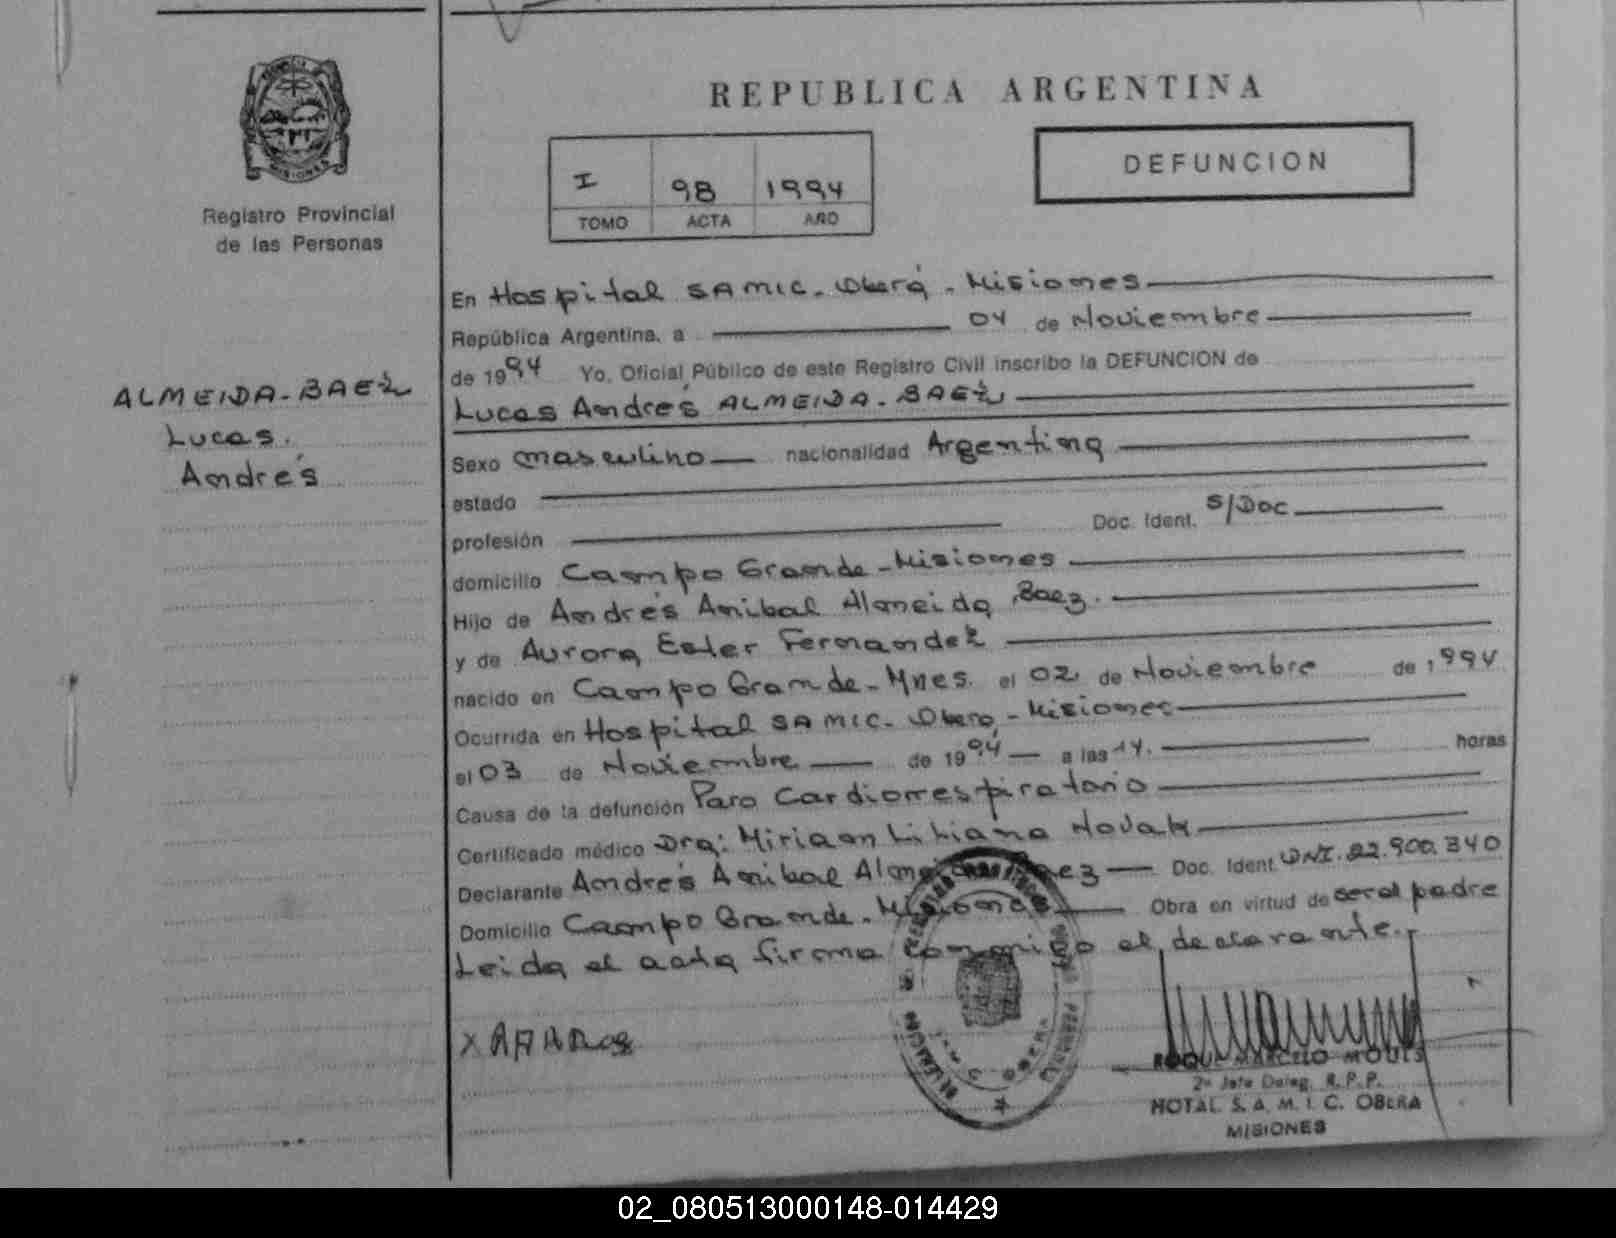 MISIONES
Registro Provincial
de las Personas
ALMEIDA-BAEZ
Lucas
Andrés
REPUBLICA ARGENTINA
I 98 1994
TOMO ACTA AÑO
DEFUNCION
En Hospital SAMIC. Oberá. Misiones
República Argentina, a 04 de Noviembre
de 1994 Yo, Oficial Público de este Registro Civil inscribo la DEFUNCION de
Lucas Andrés ALMEIDA-BAEZ
Sexo masculino nacionalidad Argentina
estado
profesión Doc. Ident. S/Doc
domicilio Campo Grande-Misiones
Hijo de Andrés Anibal Almeida Baez.
y de Aurora Ester Fernandez
nacido en Campo Grande-Mnes. el 02 de Noviembre de 1994
Ocurrida en Hospital SAMIC-Oberá-Misiones
el 03 de Noviembre de 1994 a las 14. horas
Causa de la defunción Paro Cardiorrespiratorio
Certificado médico Dra: Miriam Liliana Novak
Declarante Andrés Anibal Almeida Baez Doc. Ident. DNI.22.900.340
Domicilio Campo Grande-Misiones Obra en virtud de ser el padre
Leida el acta firma conmigo el declarante.
ROQUE MARCELO
2º Jefe Deleg. R.P.P.
HOTAL S.A.M.I.C. OBERA
MISIONES
02_080513000148-014429